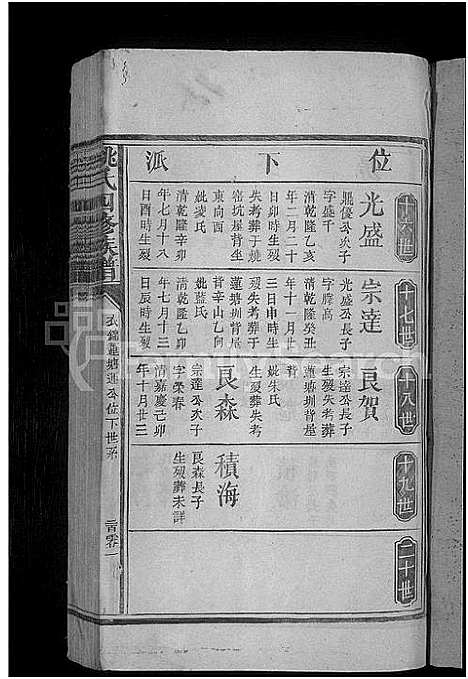 位下派
十六世
十七世
十八世
十九世
二十世
光盛
鼎優公次子
字盛千
清乾隆乙亥
年二月二十
日卯時生歿
失考葬于燒
窰坑背坐
東向西
妣凌氏
清乾隆辛卯
年七月十八
日酉時生歿
宗達
光盛公長子
字勝高
清乾隆癸丑
年十一月廿
三日申時生
歿失考葬于
蓮塘圳背屋
背辛山乙向
妣藍氏
清乾隆乙卯
年七月十三
日辰時生歿
良賀
宗達公長子
生歿失考葬
蓮塘圳背屋
背
妣朱氏
生歿葬失考
良森
宗達公次子
字榮春
清嘉慶己卯
年十月廿三
積海
良森長子
生歿葬未詳
姚氏四修族譜
衣錦蓮塘通公位下世系
FamilySearch